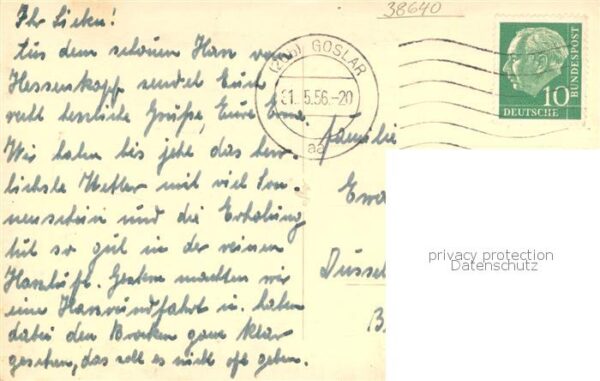 38640
Ihr Lieben!
Aus dem schönen Harz vom
Hessenkopf sendet Euch
recht herzliche Grüße, Eure Erna.
Wir haben bis jetzt das herr-
lichste Wetter mit viel Son-
nenschein und die Erholung
tut so gut in der reinen
Harzluft. Gestern machten wir
eine Harzrundfahrt u. haben
dabei den Brocken ganz klar
gesehen, das soll es nicht oft geben.
(20b) GOSLAR
31.5.56.-20
aa
10
DEUTSCHE
BUNDESPOST
Familie
Ewa
Düssel
privacy protection
Datenschutz